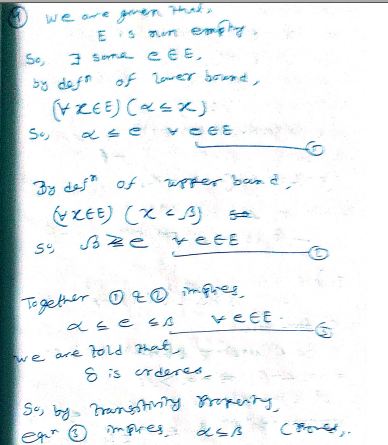 ④ We are given that,
E is non empty.
So, ∃ some e∈E,
by defⁿ of lower bound,
(∀x∈E) (α≤x)
So, α≤e ∀ e∈E ①
By defⁿ of upper bound,
(∀x∈E) (x≤β)
So β≥e ∀ e∈E ②
Together ① & ② implies,
α≤e≤β ∀ e∈E. ③
we are told that,
S is ordered,
So, by transitivity property,
eqⁿ ③ implies, α≤β